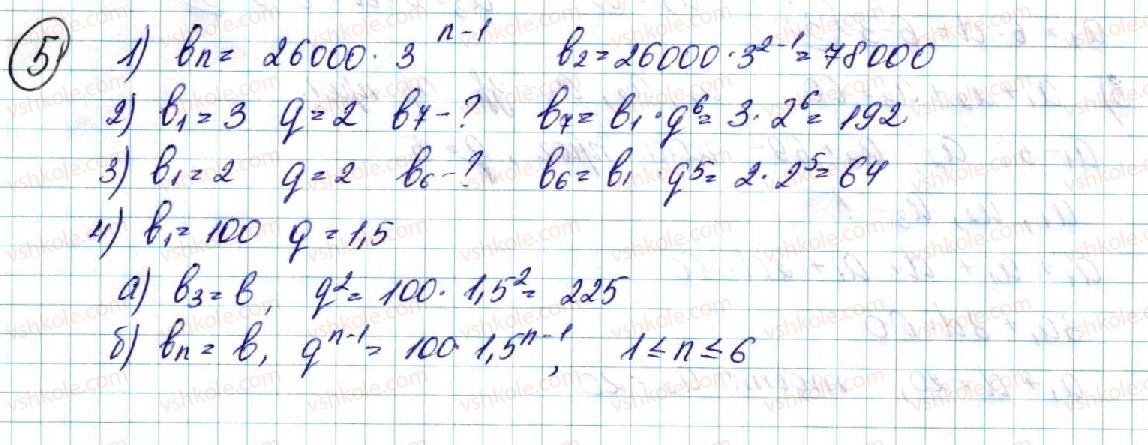 5 1) bₙ = 26000 · 3ⁿ⁻¹ b₂ = 26000 · 3²⁻¹ = 78000
2) b₁ = 3 q = 2 b₇ - ? b₇ = b₁ · q⁶ = 3 · 2⁶ = 192
3) b₁ = 2 q = 2 b₆ - ? b₆ = b₁ · q⁵ = 2 · 2⁵ = 64
4) b₁ = 100 q = 1,5
а) b₃ = b₁ q² = 100 · 1,5² = 225
б) bₙ = b₁ qⁿ⁻¹ = 100 · 1,5ⁿ⁻¹, 1 ≤ n ≤ 6
vshkole.com